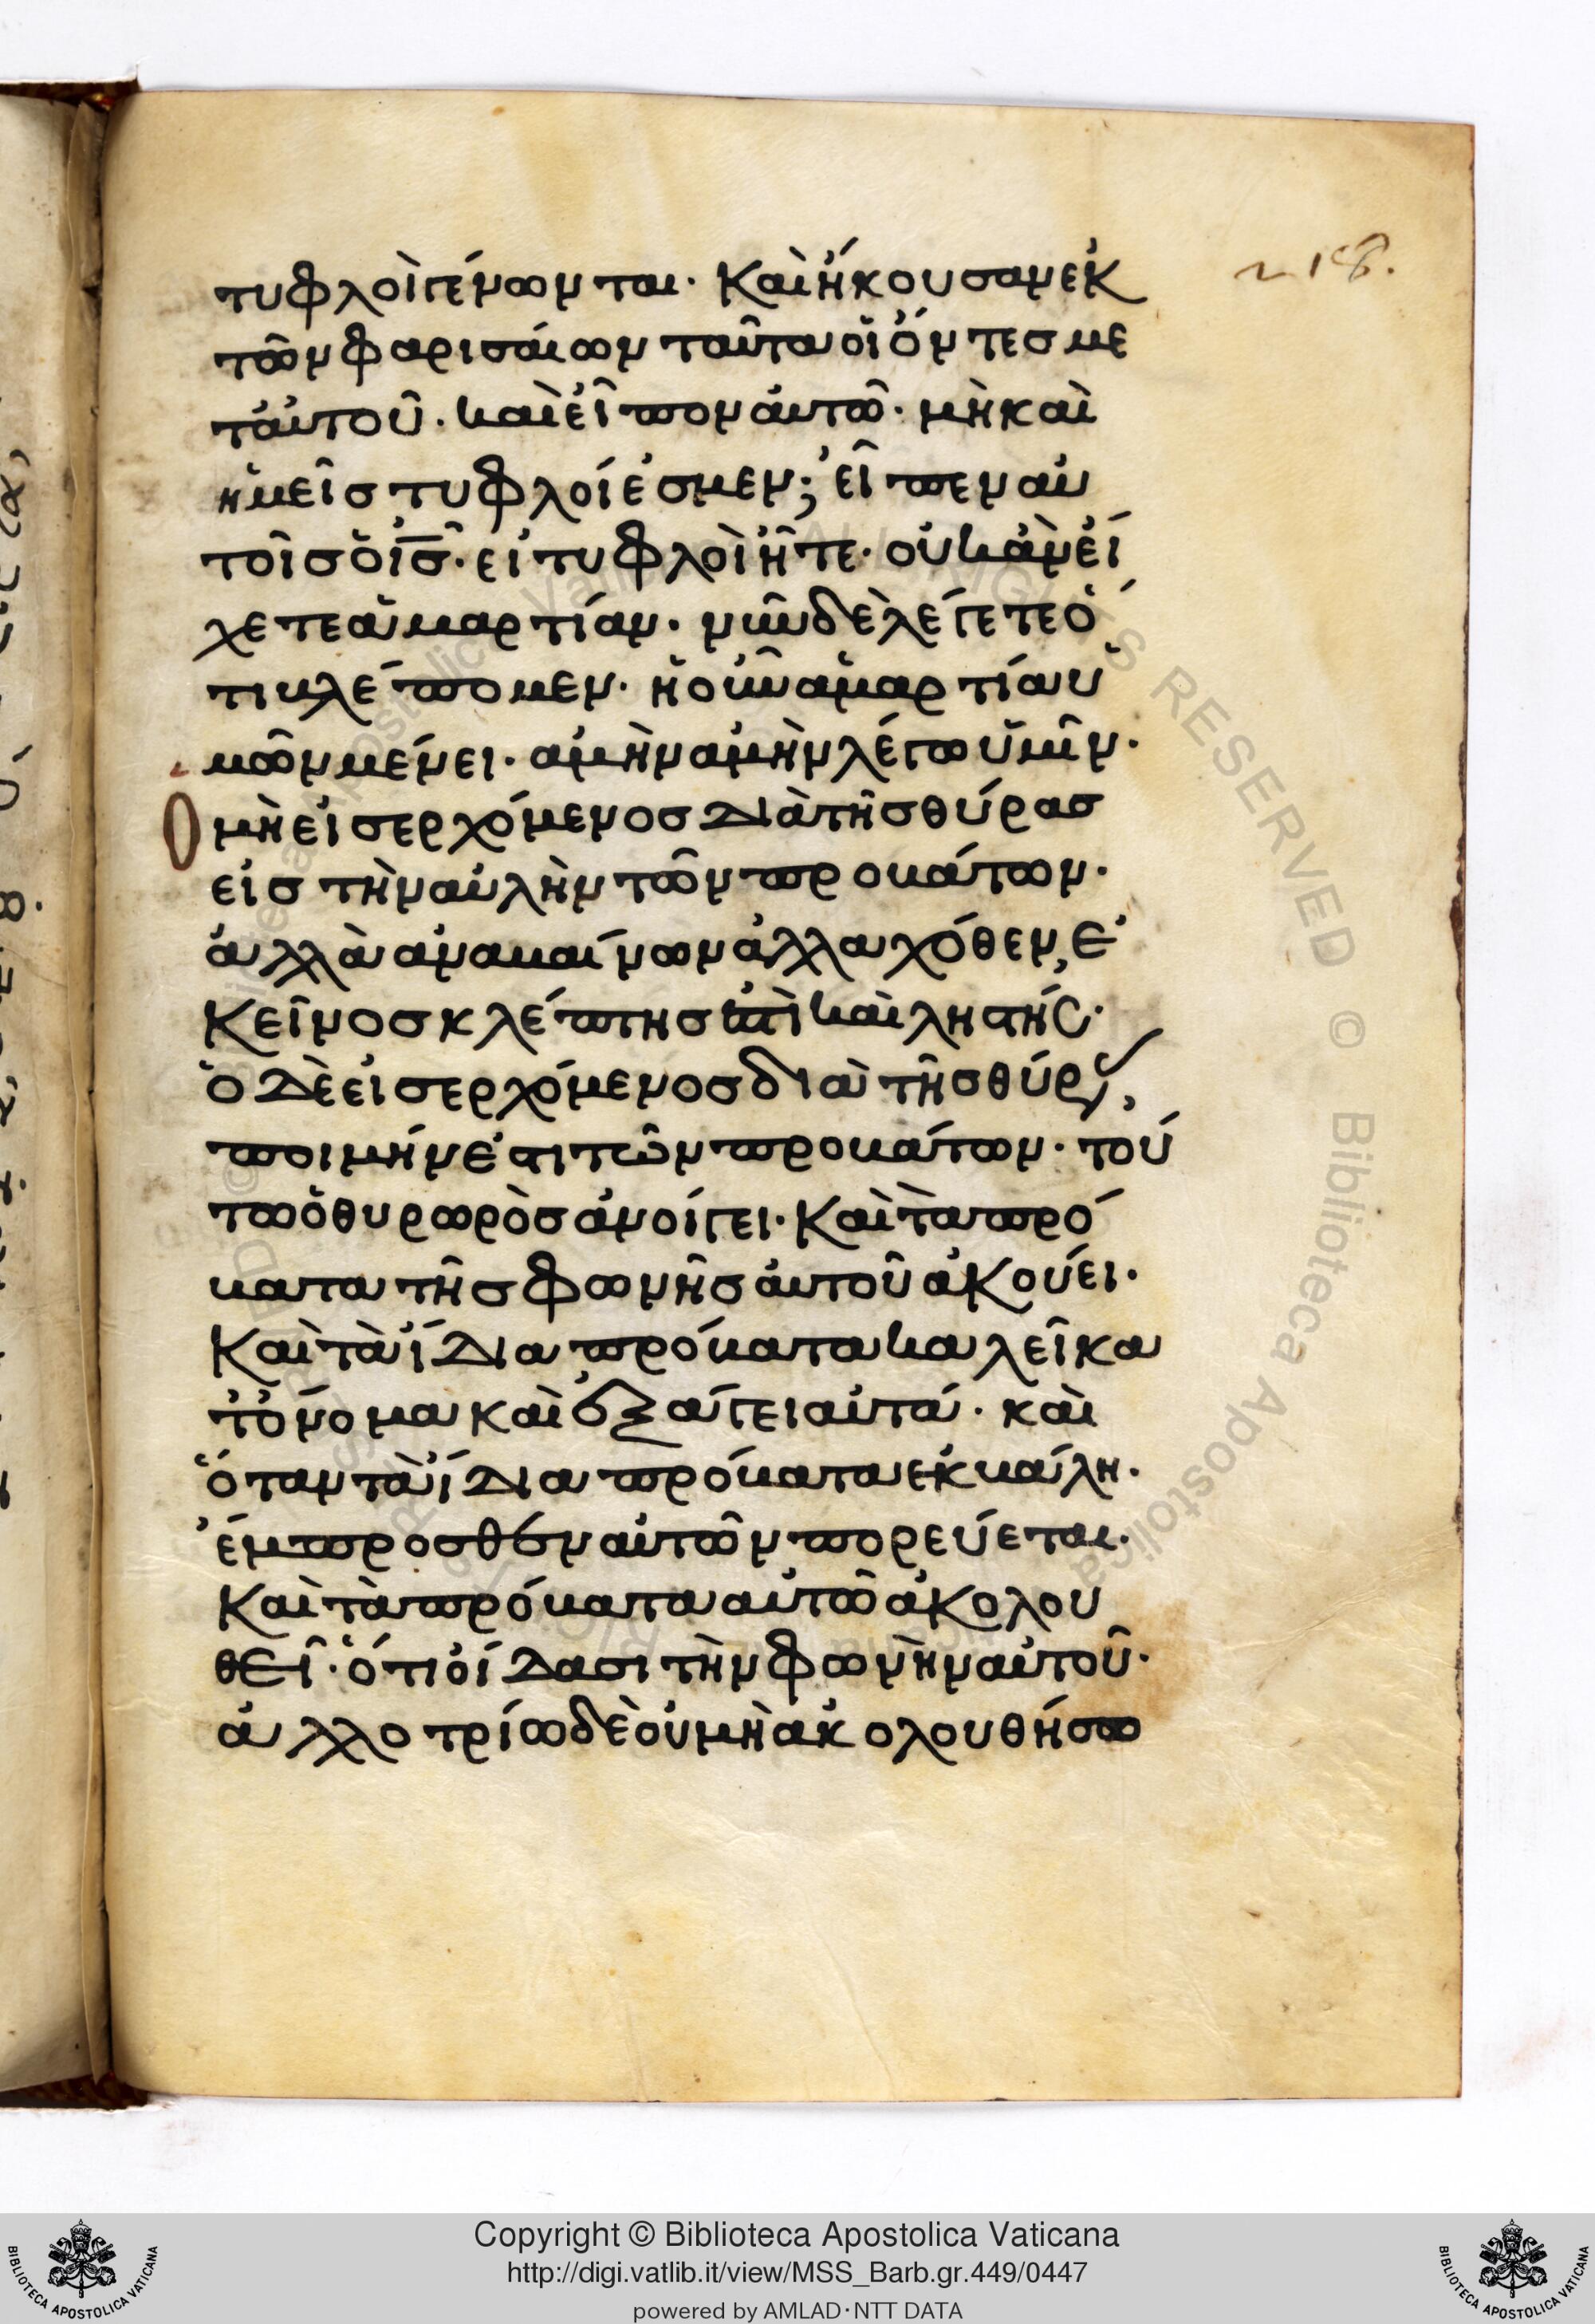 218.
τυφλοὶ γένωνται· Καὶ ἤκουσαν ἐκ
τῶν φαρισαίων ταῦτα οἱ ὄντες με
τ᾽ αὐτοῦ· καὶ εἶπον αὐτῶ· μὴ καὶ
ἡμεῖς τυφλοί ἐσμεν; εἶπεν αὐ
τοῖς ὁ ις· εἰ τυφλοὶ ἦτε· οὐκ ἂν εἴ
χετε ἁμαρτίαν· νῦν δὲ λέγετε ὅ
τι βλέπομεν· ἡ οὖν ἁμαρτία ὑ
μῶν μένει· ἀμὴν ἀμὴν λέγω ὑμῖν·
Ο μὴ εἰσερχόμενος διὰ τῆς θύρας
εἰς τὴν αὐλὴν τῶν προβάτων·
ἀλλὰ ἀναβαίνων ἀλλαχόθεν, ἐ
κεῖνος κλέπτης ἐστὶ καὶ ληστής·
ὁ δὲ εἰσερχόμενος διὰ τῆς θύρας,
ποιμήν ἐστι τῶν προβάτων· τού
τω ὁ θυρωρὸς ἀνοίγει· Καὶ τὰ πρό
βατα τῆς φωνῆς αὐτοῦ ἀκούει·
Καὶ τὰ ἴδια πρόβατα καλεῖ κα
τ᾽ ὄνομα καὶ ἐξάγει αὐτά· καὶ
ὅταν τὰ ἴδια πρόβατα ἐκβάλη·
ἔμπροσθεν αὐτῶν πορεύεται·
Καὶ τὰ πρόβατα αὐτῶ ἀκολου
θεῖ· ὅτι οἴδασι τὴν φωνὴν αὐτοῦ·
ἀλλοτρίω δὲ οὐ μὴ ἀκολουθήσω
Copyright © Biblioteca Apostolica Vaticana
http://digi.vatlib.it/view/MSS_Barb.gr.449/0447
powered by AMLAD·NTT DATA
BIBLIOTECA APOSTOLICA VATICANA
BIBLIOTECA APOSTOLICA VATICANA